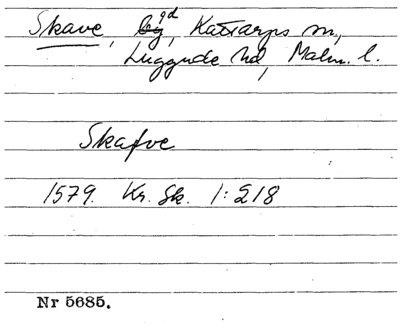 Skave, gd, Kattarps sn,
Luggude hd, Malm. l.
Skafve
1579. Kr. Sk. 1:218
Nr 5685.